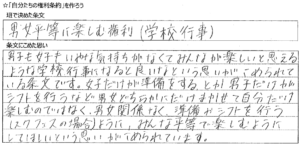 ☆「自分たちの権利条約」を作ろう
班で決めた条文
男女平等に楽しむ権利(学校行事)
条文にこめた思い
男子も女子もいやな気持ちがなくてみんなが楽しいと思える
ような学校行事になると良いなという思いがこめられて
いる条文です。女子だけが準備をするとか男子だけが
シフトを行うなど男女どちらかにだけまかせて自分だけ
楽しむのではなく、男女関係なく準備やシフトを行う
(スクフェスの場合)ように、みんな平等で楽しむように
してほしいという思いがこめられています。